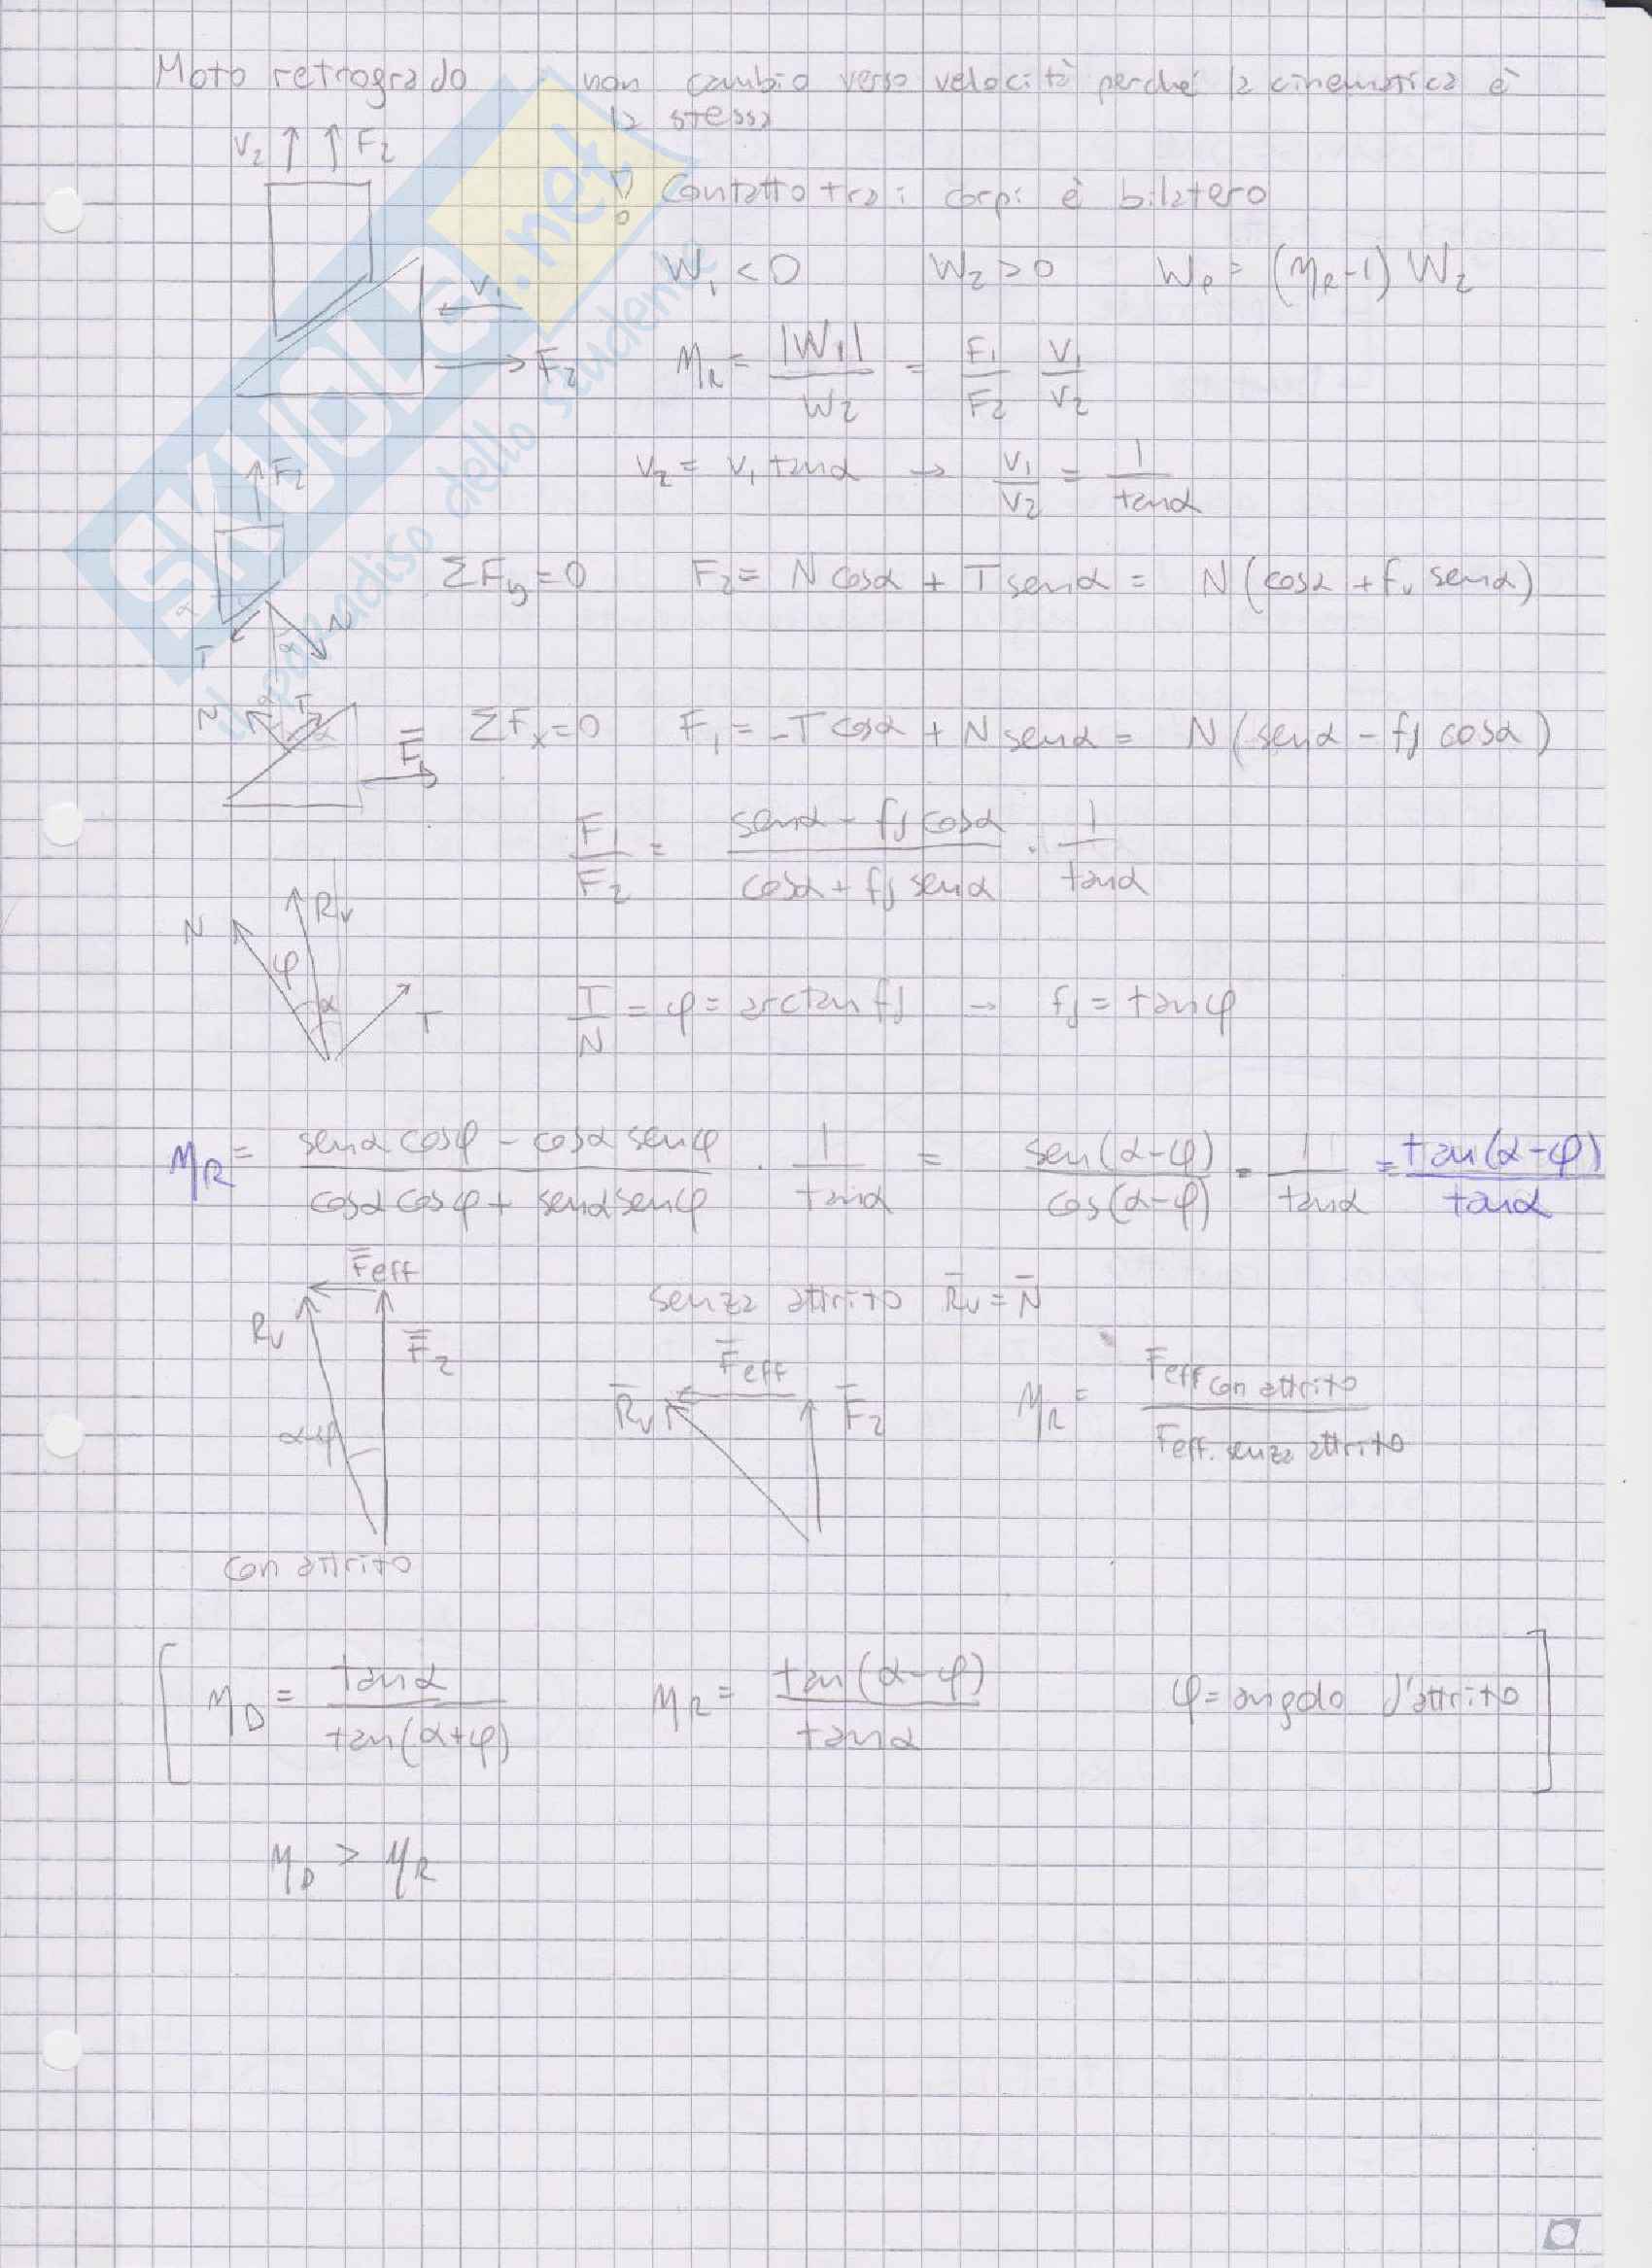 Moto retrogrado non cambio verso velocità perché la cinematica è
la stessa
V₂ F₂
! Contatto tra i corpi è bilatero
W₁ < 0 W₂ > 0 Wₚ = (ηR - 1) W₂
V₁
F₂
ηR = |W₁| / W₂ = F₁/F₂ V₁/V₂
V₂ = V₁ tanα → V₁/V₂ = 1/tanα
F₂
ΣFy = 0 F₂ = N cosα + T senα = N (cosα + fv senα)
α
T α N
N α T α
F₁ ΣFx = 0 F₁ = -T cosα + N senα = N (senα - fd cosα)
F₁/F₂ = (senα - fd cosα)/(cosα + fd senα) · 1/tanα
N Rv
φ α T
T/N = φ = arctan fd → fd = tanφ
ηR = (senα cosφ - cosα senφ)/(cosα cosφ + senα senφ) · 1/tanα = sen(α-φ)/cos(α-φ) · 1/tanα = tan(α-φ)/tanα
Feff
senza attrito Rv = N
Rv F₂
Feff
Rv F₂
ηR = Feff con attrito / Feff. senza attrito
α-φ
con attrito
[ ηD = tanα / tan(α+φ) ηR = tan(α-φ) / tanα φ = angolo d'attrito ]
ηD > ηR
SKUOLA.net
il paradiso dello studente